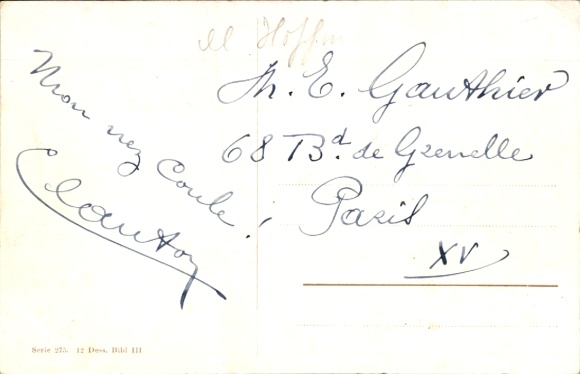 M Hoffm
Mon nez coule!
Clautoy
M. E. Gauthier
68 Bd. de Grenelle
Paris
XV
Serie 275. 12 Dess. Bibl III